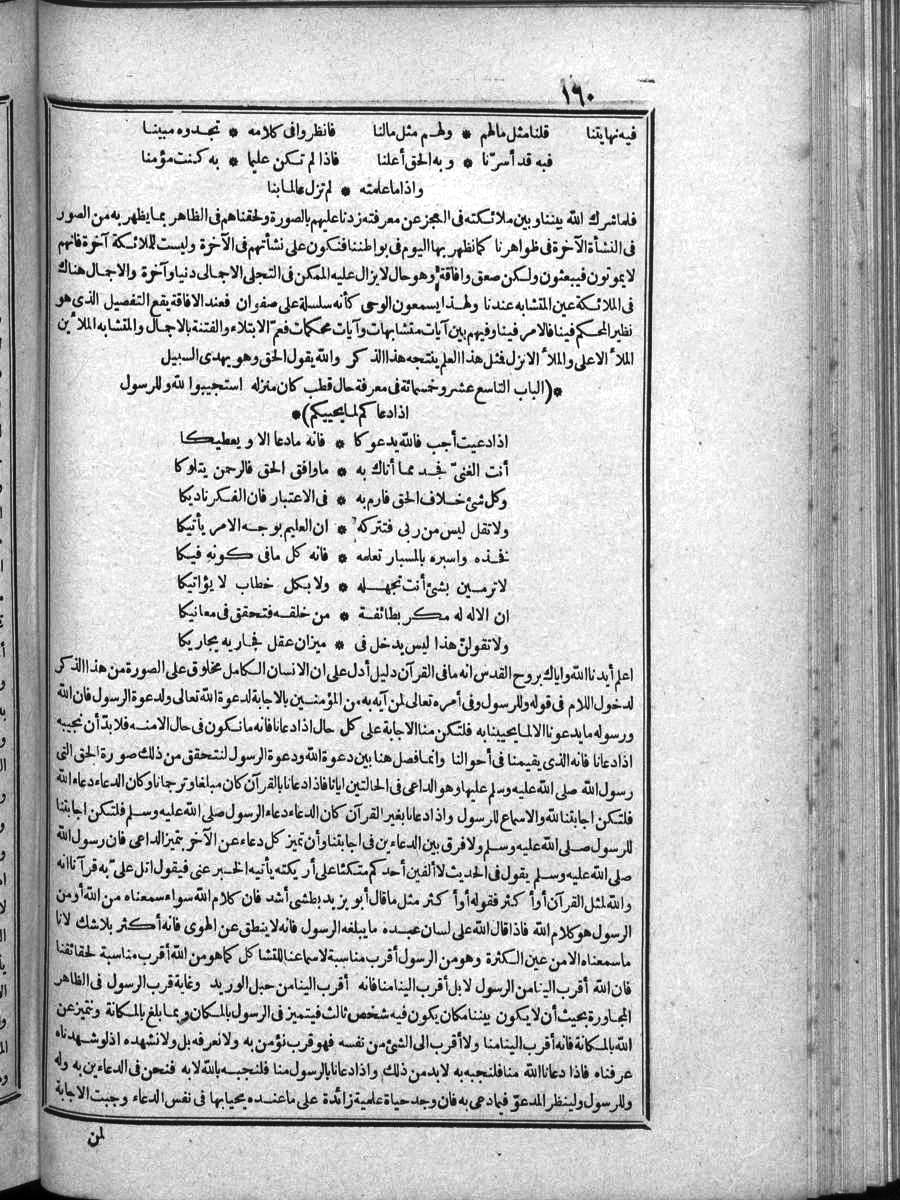 ١٦٠
فيه نهايتنا قلنا مثل مالهم * ولهم مثل مالنا فانظروا فى كلامه * تجدوه مبينا
فبه قد أسرّنا * وبه الحق أعلنا فاذا لم تكن عليما * به كنت مؤمنا
واذا ما علمته * لم تزل عالما بنا
فلما شرك الله بيننا وبين ملائكته فى العجز عن معرفته زدنا عليهم بالصورة ولحقناهم فى الظاهر بما يظهر به من الصور
فى النشأة الآخرة فى ظواهرنا كما نظهر بها اليوم فى بواطننا فنكون على نشأتهم فى الآخرة وليست للملائكة آخرة فانهم
لا يموتون فيبعثون ولكن صعق وافاقة وهو حال لا يزال عليه الممكن فى التجلى الاجمالى دنيا وآخرة والاجمال هناك
فى الملائكة عين المتشابه عندنا ولهذا يسمعون الوحى كأنه سلسلة على صفوان فعند الافاقة يقع التفصيل الذى هو
نظير المحكم فينا فالامر فينا وفيهم بين آيات متشابهات وآيات محكمات فعمّ الابتلاء والفتنة بالاجمال والمتشابه الملأين
الملأ الاعلى والملأ الانزل فمثل هذا العلم ينتجه هذا الذكر والله يقول الحق وهو يهدى السبيل
*(الباب التاسع عشر وخمسمائة فى معرفة حال قطب كان منزله استجيبوا لله وللرسول
اذا دعاكم لما يحييكم)*
اذا دعيت أجب فالله يدعوكا * فانه ما دعا الا ويعطيكا
أنت الغنىّ فجد مما أتاك به * ما وافق الحق فالرحمن يتلوكا
وكل شئ خلاف الحق فارم به * فى الاعتبار فان الفكر ناديكا
ولا تقل ليس من ربى فتتركه * ان العليم بوجه الامر يأتيكا
فخذه واسبره بالمسبار تعلمه * فانه كل ما فى كونه فيكا
لا ترمين بشئ أنت تجهله * ولا بكل خطاب لا يؤاتيكا
ان الاله له مكر بطائفة * من خلقه فتحقق فى معانيكا
ولا تقولنّ هذا ليس يدخل فى * ميزان عقل فجاريه يجاريكا
اعلم أيدنا الله واياك بروح القدس انه ما فى القرآن دليل أدل على ان الانسان الكامل مخلوق على الصورة من هذا الذكر
لدخول اللام فى قوله وللرسول وفى أمره تعالى لمن آيه به من المؤمنين بالاجابة لدعوة الله تعالى ولدعوة الرسول فان الله
ورسوله ما يدعونا الا لما يحيينا به فلتكن منا الاجابة على كل حال اذا دعانا فانه ما نكون فى حال الا منه فلا بدّ أن نجيبه
اذا دعانا فانه الذى يقيمنا فى أحوالنا وانما فصل هنا بين دعوة الله ودعوة الرسول لنتحقق من ذلك صورة الحق التى
رسول الله صلى الله عليه وسلم عليها وهو الداعى فى الحالتين ايانا فاذا دعانا بالقرآن كان مبلغا وترجمانا وكان الدعاء دعاء الله
فلتكن اجابتنا لله والاسماع للرسول واذا دعانا بغير القرآن كان الدعاء دعاء الرسول صلى الله عليه وسلم فلتكن اجابتنا
للرسول صلى الله عليه وسلم ولا فرق بين الدعاءين فى اجابتنا وأن تميز كل دعاء عن الآخر بتميز الداعى فان رسول الله
صلى الله عليه وسلم يقول فى الحديث لا ألفين أحدكم متكئا على أريكته يأتيه الخبر عنى فيقول اتل علىّ به قرآنا انه
والله لمثل القرآن أو أكثر فقوله أو أكثر مثل ما قال أبو يزيد بطشى أشد فان كلام الله سواء سمعناه من الله أو من
الرسول هو كلام الله فاذا قال الله على لسان عبده ما يبلغه الرسول فانه لا ينطق عن الهوى فانه أكثر بلا شك لانا
ما سمعناه الا من عين الكثرة وهو من الرسول أقرب مناسبة لاسماعنا للتشاكل كما هو من الله أقرب مناسبة لحقائقنا
فان الله أقرب الينا من الرسول لا بل أقرب الينا منا فانه أقرب الينا من حبل الوريد وغاية قرب الرسول فى الظاهر
المجاورة بحيث أن لا يكون بيننا مكان يكون فيه شخص ثالث فيتميز فى الرسول بالمكان وبما بلغ بالمكانة ونتميز عن
الله بالمكانة فانه أقرب الينا منا ولا أقرب الى الشئ من نفسه فهو قرب نؤمن به ولا نعرفه بل ولا نشهده اذ لو شهدناه
عرفناه فاذا دعانا الله منا فلنجبه به لا بد من ذلك واذا دعانا بالرسول منا فلنجبه بالله لا به فنحن فى الدعاءين به وله
وللرسول ولينظر المدعوّ فيما دعى به فان وجد حياة علمية زائدة على ما عنده يحيا بها فى نفس الدعاء وجبت الاجابة
لمن